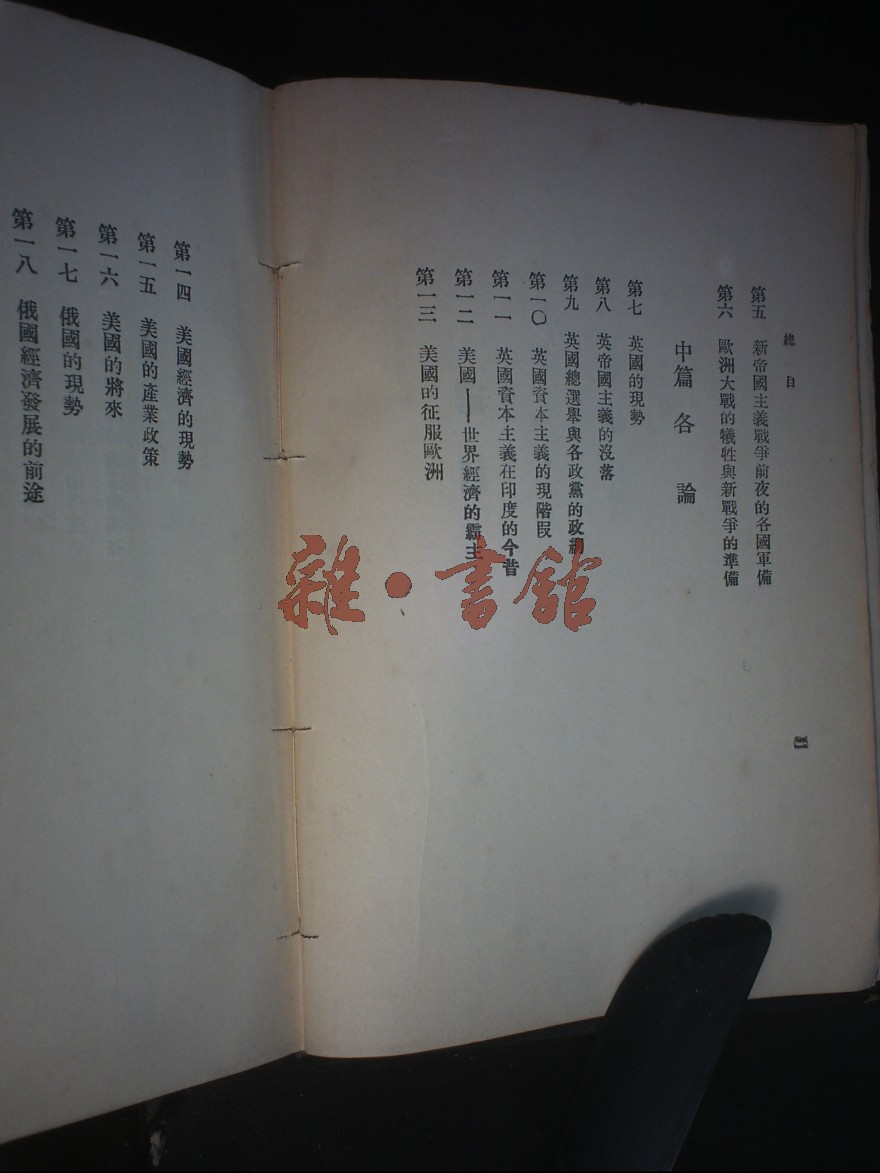 總目
第五 新帝國主義戰爭前夜的各國軍備
第六 歐洲大戰的犧牲與新戰爭的準備
中篇 各論
第七 英國的現勢
第八 英帝國主義的沒落
第九 英國總選舉與各政黨的政綱
第一〇 英國資本主義的現階段
第一一 英國資本主義在印度的今昔
第一二 美國——世界經濟的霸主
第一三 美國的征服歐洲
第一四 美國經濟的現勢
第一五 美國的產業政策
第一六 美國的將來
第一七 俄國的現勢
第一八 俄國經濟發展的前途
雜·書館